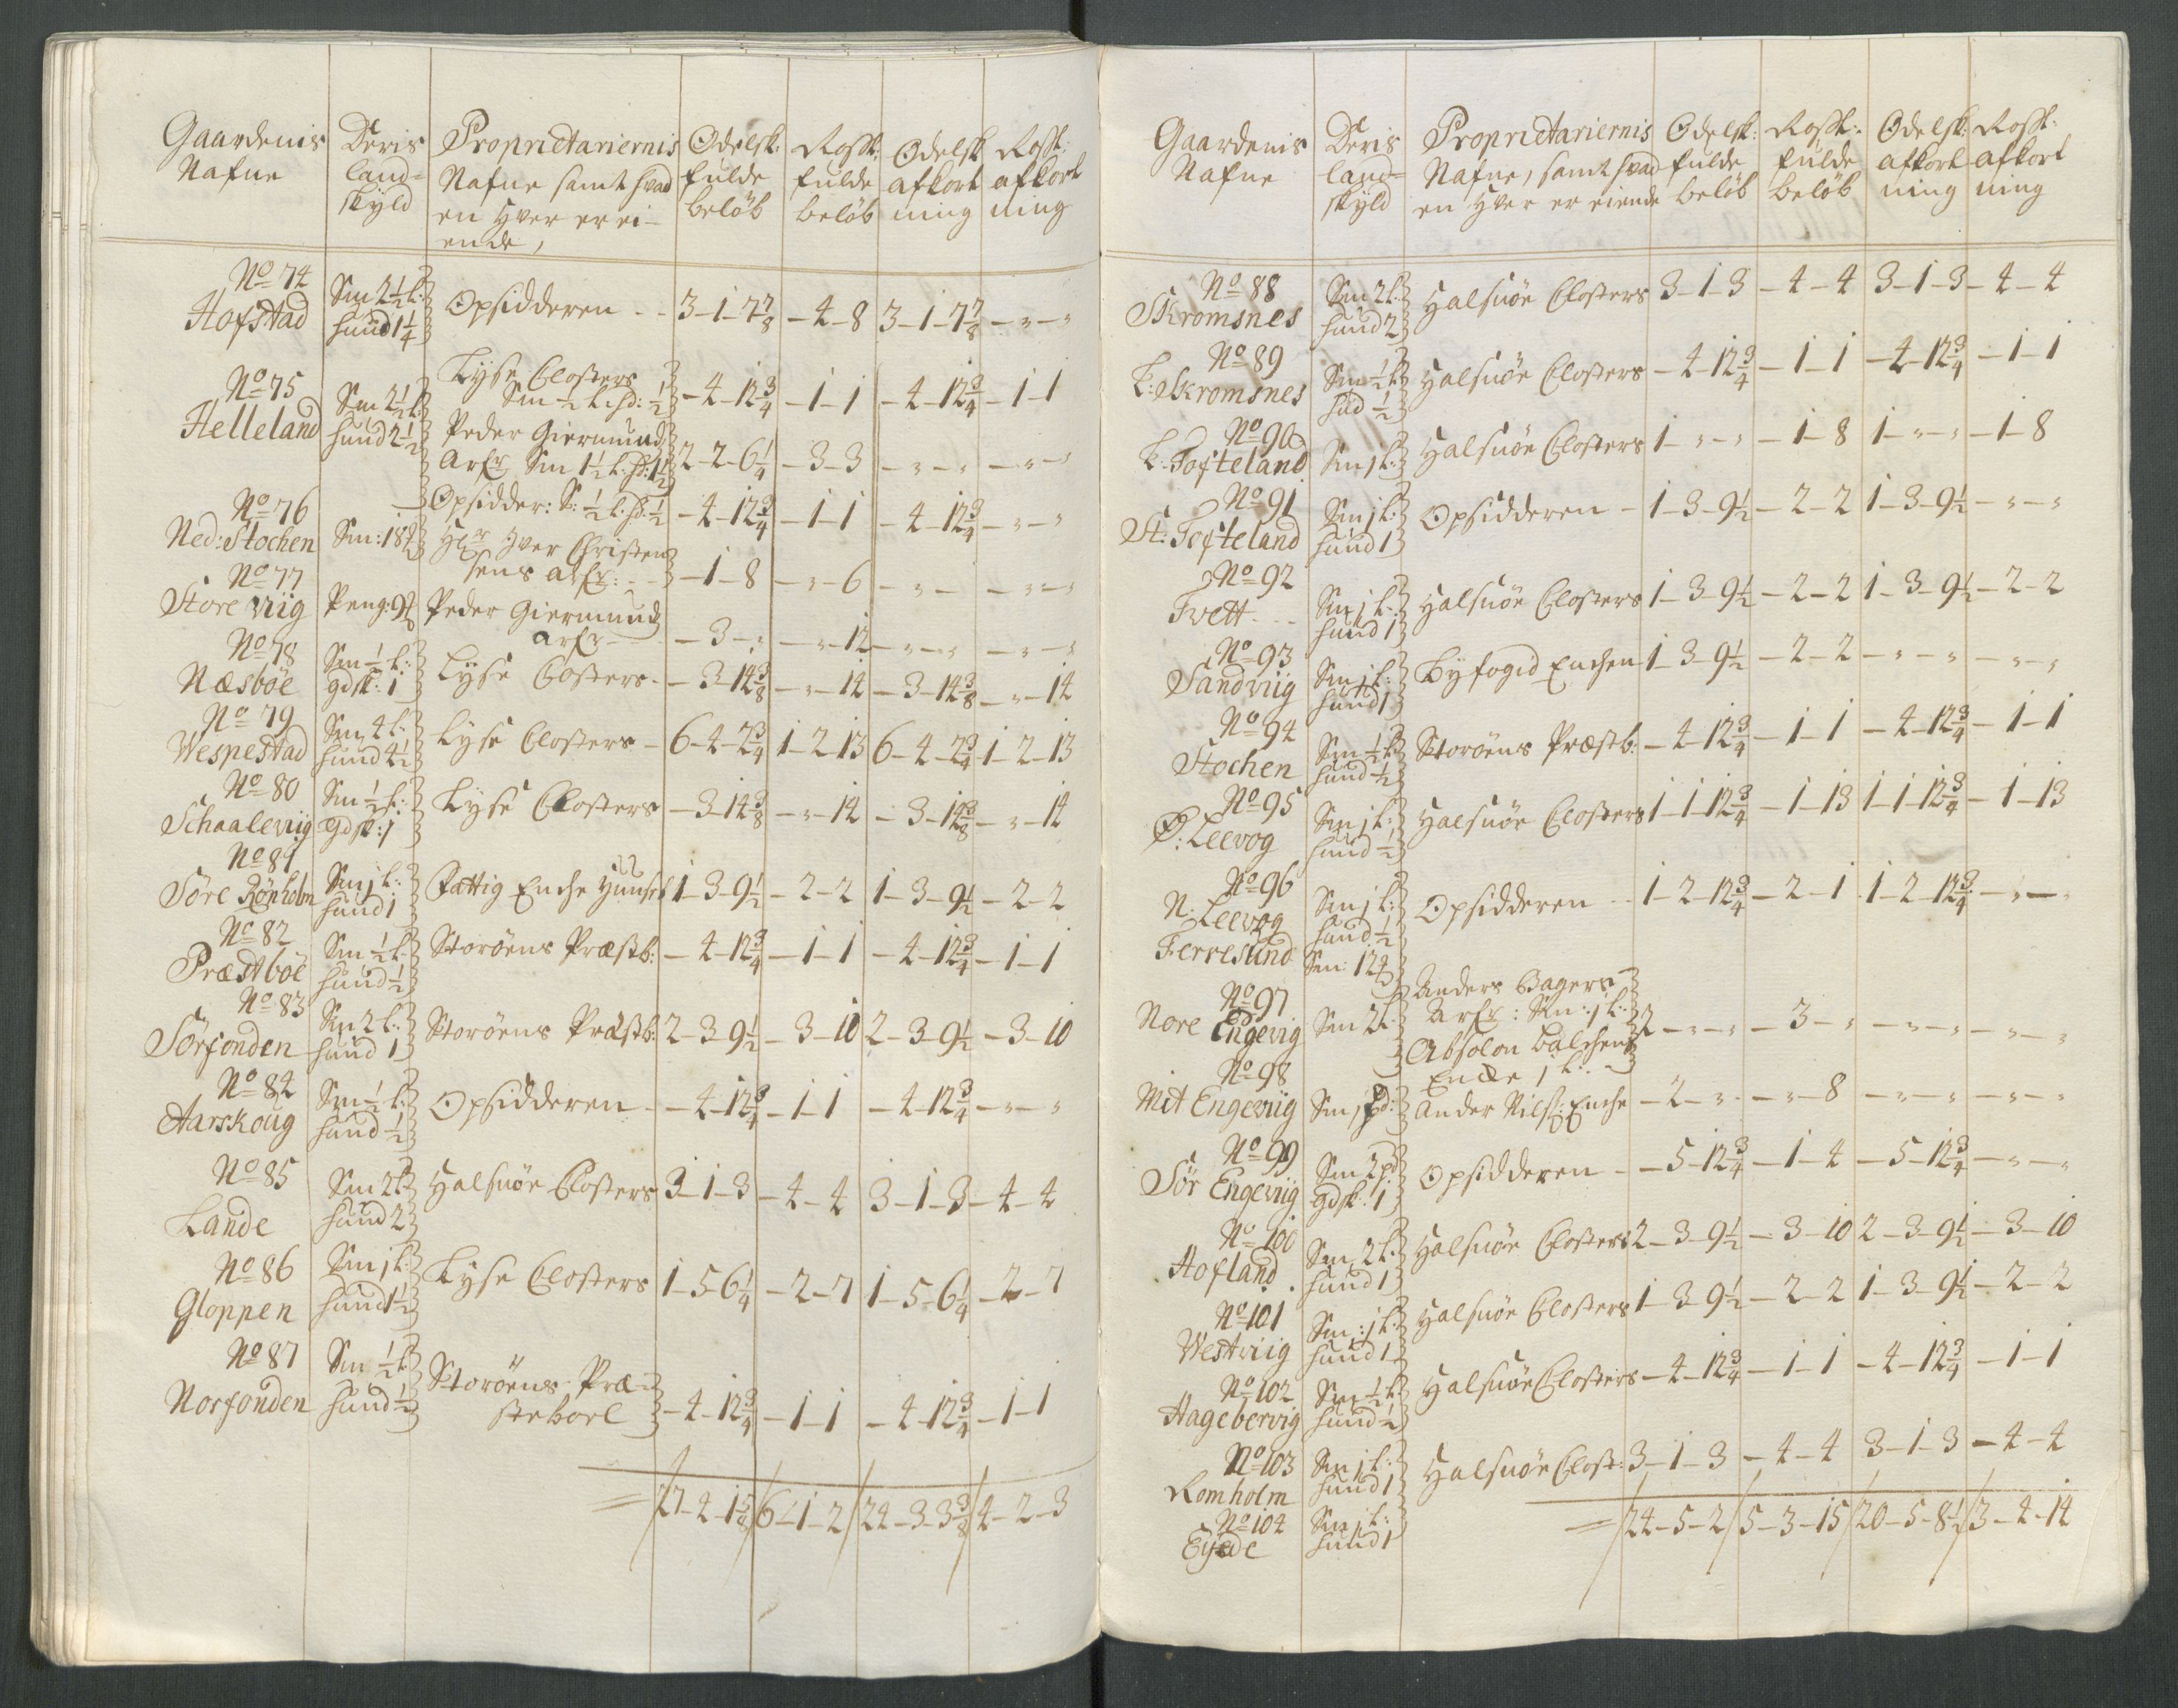 Gaardenis Nafne | Deris land= skyld | Proprietariernis Nafne samt hvad en hver er ei- ende, | Odelsk: fulde beløb | Rossk: fulde beløb | Odelsk afkort ning | Rossk: afkort ning
No 74 Hofstad | Sm 2½ l: hund 1¼ | Opsidderen - - | 3-1-7⅞ | -4-8 | 3-1-7⅞ | -"-"
No 75 Helleland | Sm 2½ l: hund 2½ | Lyse Closters Sm ½ l. hd: ½ | -4-12¾ | -1-1 | -4-12¾ | -1-1
Peder Giermund Arfr Sm 1½ l. hd: 1½ | 2-2-6¼ | -3-3 | -"-" | -"-"
Opsidder: S: ½ l. hd. ½ | -4-12¾ | -1-1 | -4-12¾ | -"-"
No 76 Ned: Stochen | Sm: 18 | Hr Iver Christen sens arfr: - - | -1-8 | -"-6 | -"- | -"-"
No 77 Store Viig | Peng: 9 | Peder Giermund arfr | -3-" | -"-12 | -"-" | -"-"
No 78 Næsböe | Sm ½ l: gdsk: 1 | Lyse Closters - | -3-14⅜ | -"-14 | -3-14⅜ | -"-14
No 79 Wespestad | Sm 4 l: hund 4½ | Lyse Closters - | 6-4-2¾ | 1-2-13 | 6-4-2¾ | 1-2-13
No 80 Schaaleviig | Sm ½ l: gdsk: 1 | Lyse Closters | -3-14⅜ | -"-14 | -3-14⅜ | -"-14
No 81 Söre Rönholm | Sm 1 l: hund 1 | Fattig Enche Huuset | 1-3-9½ | -2-2 | 1-3-9½ | -2-2
No 82 Præstböe | Sm ½ l: hund ½ | Storöens Præstb: | -4-12¾ | -1-1 | -4-12¾ | -1-1
No 83 Sörfonden | Sm 2 l: hund 1 | Storöens Præstb: | 2-3-9½ | -3-10 | 2-3-9½ | -3-10
No 84 Aarskoug | Sm ½ l: hund ½ | Opsidderen - | -4-12¾ | -1-1 | -4-12¾ | -"-"
No 85 Lande | Sm 2 l: hund 2 | Halsnöe Closters | 3-1-3 | -4-4 | 3-1-3 | -4-4
No 86 Gloppen | Sm 1 l: hund 1½ | Lyse Closters | 1-5-6¼ | -2-7 | 1-5-6¼ | -2-7
No 87 Norfonden | Sm ½ l: hund ½ | Storöens Præ- steborl | -4-12¾ | -1-1 | -4-12¾ | -1-1
= /27-4-1⅝/ 6-1-2/ 24-3-3⅜/ 4-2-3
Gaardenis Nafne | Deris land= skyld | Proprietariernis Nafne, samt hvad en hver er eiende | Odelsk: fulde beløb | Rossk: fulde beløb | Odelsk: afkort ning | Rossk: afkort ning
No 88 Skromsnes | Sm 2 l: hund 2 | Halsnöe Closters | 3-1-3 | -4-4 | 3-1-3 | -4-4
No 89 L: Skromsnes | Sm ½ l: hud ½ | Halsnöe Closters | -4-12¾ | -1-1 | -4-12¾ | -1-1
No 90 L: Tofteland | Sm 1 l: | Halsnöe Closters | 1-"-" | -1-8 | 1-"-" | -1-8
No 91 St: Tofteland | Sm 1 l: hund 1 | Opsidderen - | 1-3-9½ | -2-2 | 1-3-9½ | -"-"
No 92 Tvett - - | Sm 1 l: hund 1 | Halsnöe Closters | 1-3-9½ | -2-2 | 1-3-9½ | -2-2
No 93 Sandviig | Sm 1 l: hund 1 | Byfogid Enchen | 1-3-9½ | -2-2 | -"-" | -"-"
No 94 Stochen | Sm ½ l: hund ½ | Storöens Præstb: | -4-12¾ | -1-1 | -4-12¾ | -1-1
No 95 Ø: Leevog | Sm 1 l: hund ½ | Halsnöe Closters | 1-1-12¾ | -1-13 | 1-1-12¾ | -1-13
No 96 N: Leevog Ferresund | Sm 1 l: hund ½ Sm: 12 | Opsidderen - - | 1-2-12¾ | -2-1 | 1-2-12¾ | -"-"
No 97 Nore Engevig | Sm 2 l: | Anders Bagers Arfr: Sm: 1 l: Absolon Balchens Enche 1 l: | 2-"-" | -3-" | -"-" | -"-"
No 98 Mit Engeviig | Sm 1 pd: | Ander Nils: Enche | -2-" | -"-8 | -"-" | -"-"
No 99 Sör Engeviig | Sm 2 pd gdsk: 1 | Opsidderen - | -5-12¾ | -1-4 | -5-12¾ | -"-"
No 100 Hofland | Sm 2 l: hund 1 | Halsnöe Closters | 2-3-9½ | -3-10 | 2-3-9½ | -3-10
No 101 Westviig | Sm: 1 l: hund 1 | Halsnöe Closters | 1-3-9½ | -2-2 | 1-3-9½ | -2-2
No 102 Hagebervig | Sm ½ l: hund ½ | Halsnöe Closters | -4-12¾ | -1-1 | -4-12¾ | -1-1
No 103 Romholm | Sm 1 l: hund 1 | Halsnöe Clost: | 3-1-3 | -4-4 | 3-1-3 | -4-4
No 104 Eyede | Sm 1 l: hund 1
= /24-5-2/ 5-3-15/ 20-5-8½/ 3-4-14